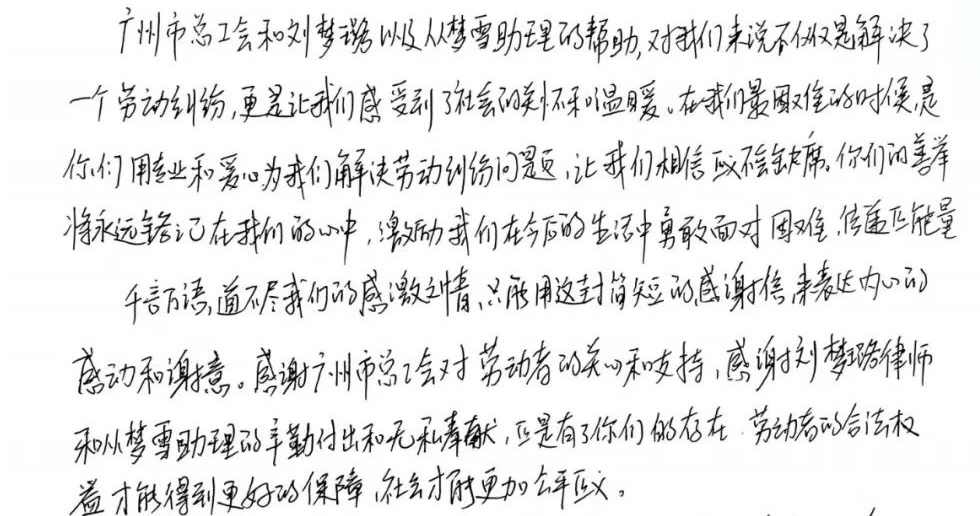 广州市总工会和刘梦璐以及从梦雪助理的帮助,对我们来说不仅仅是解决了
一个劳动纠纷,更是让我们感受到了社会的关怀和温暖。在我们最困难的时候,是
你们用专业和爱心为我们解决劳动纠纷问题,让我们相信正义不会缺席。你们的善举
将永远铭记在我们的心中,激励我们在今后的生活中勇敢面对困难,传递正能量
千言万语,道不尽我们的感激之情,只能用这封简短的感谢信,来表达内心的
感动和谢意。感谢广州市总工会对劳动者的关心和支持,感谢刘梦璐律师
和从梦雪助理的辛勤付出和无私奉献,正是有了你们的存在 劳动者的合法权
益才能得到更好的保障,社会才能更加公平正义。